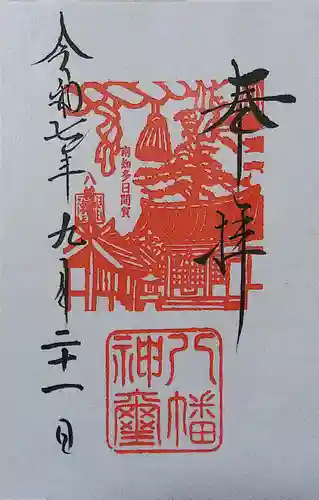 奉拝
南知多日間賀
八幡
八幡
神璽
令和七年九月二十一日